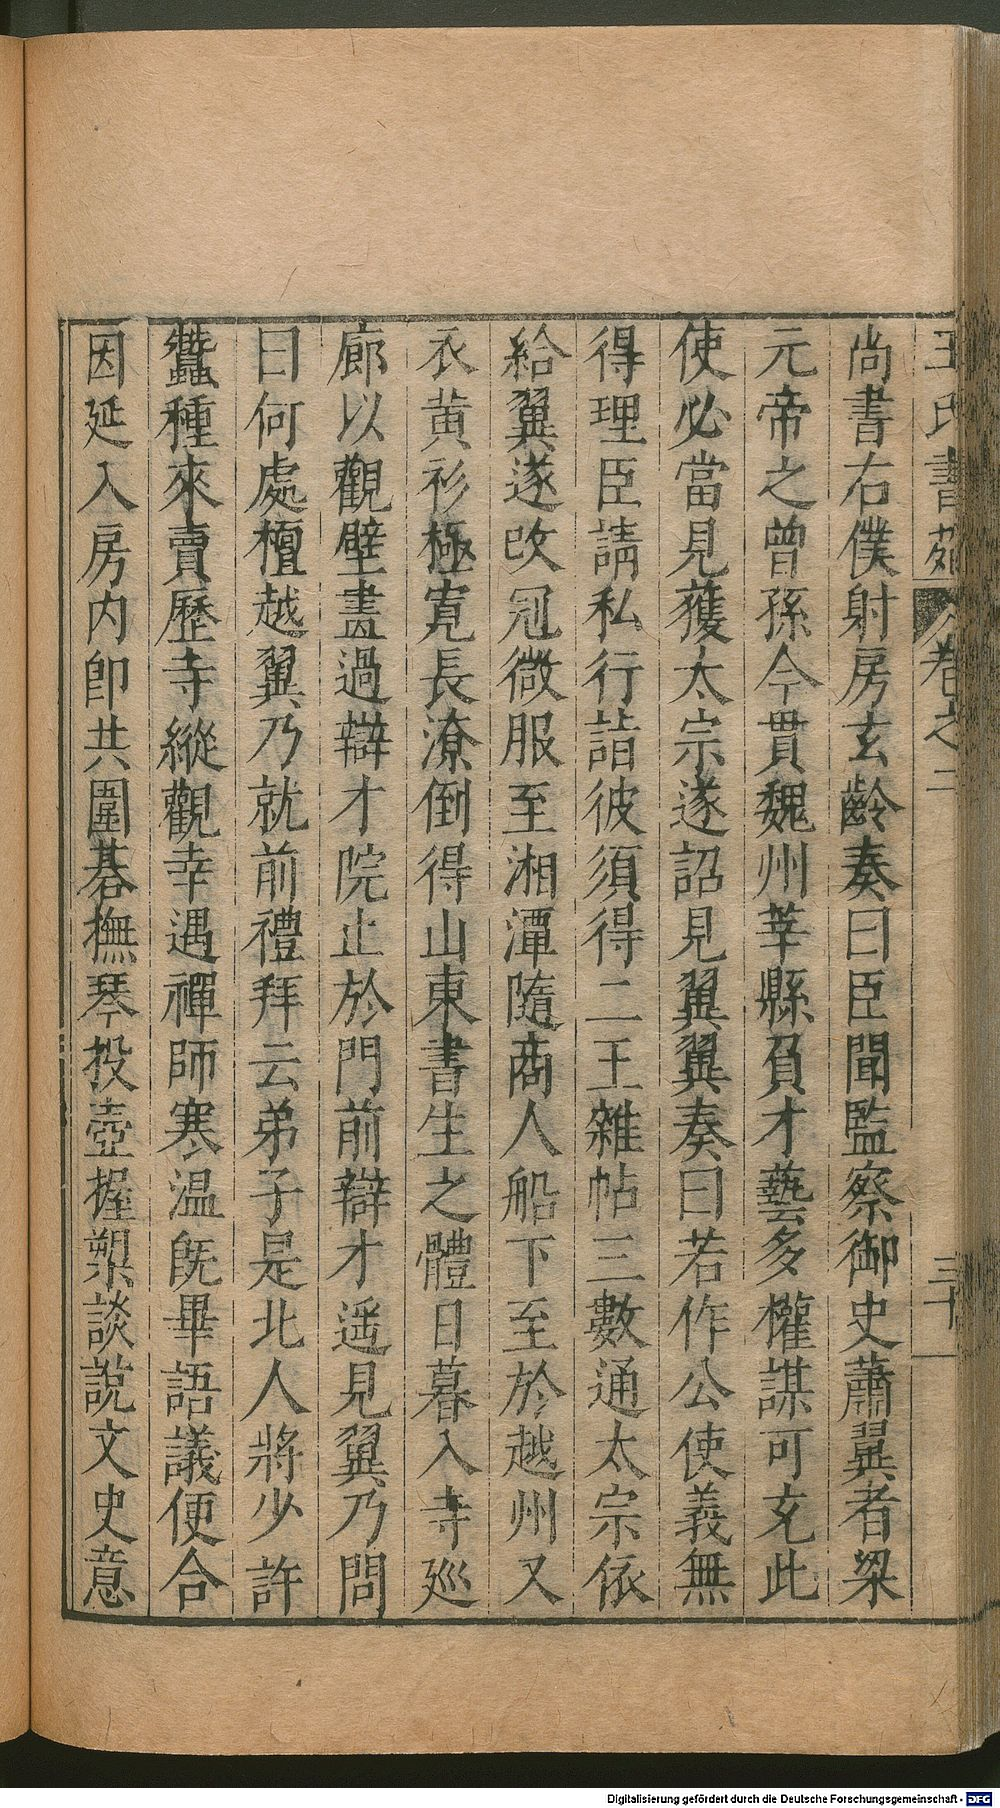 王氏書苑 卷之二 三十一
尚書右僕射房玄齡奏曰臣聞監察御史蕭翼者梁
元帝之曾孫今貫魏州莘縣負才藝多權謀可充此
使必當見獲太宗遂詔見翼翼奏曰若作公使義無
得理臣請私行詣彼須得二王雜帖三數通太宗依
給翼遂改冠微服至湘潭隨商人船下至於越州又
衣黃衫極寬長潦倒得山東書生之體日暮入寺廵
廊以觀壁畫過辯才院止於門前辯才遥見翼乃問
曰何處檀越翼乃就前禮拜云弟子是北人將少許
蠶種來賣歷寺縱觀幸遇禪師寒温既畢語議便合
因延入房内即共圍碁撫琴投壺握槊談說文史意
Digitalisierung gefördert durch die Deutsche Forschungsgemeinschaft - DFG